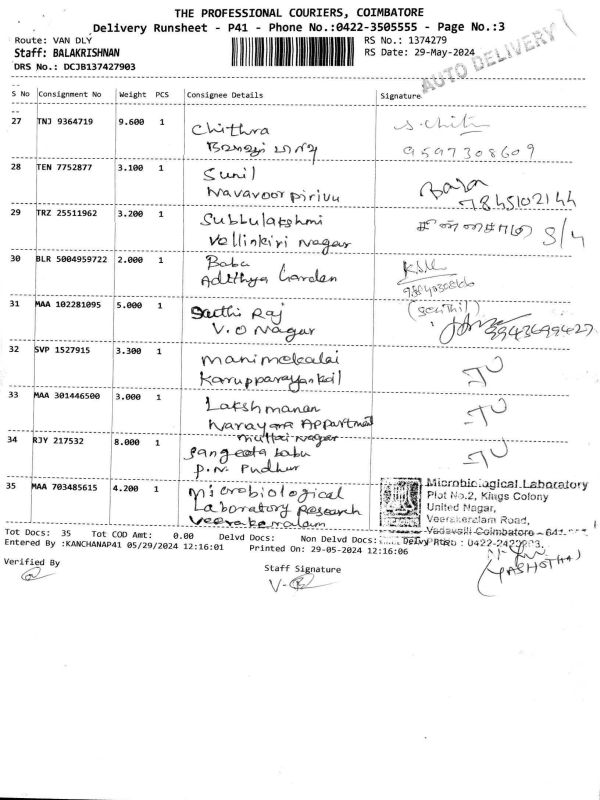 THE PROFESSIONAL COURIERS, COIMBATORE
Delivery Runsheet - P41 - Phone No.:0422-3505555 - Page No.:3
Route: VAN DLY
RS No.: 1374279
Staff: BALAKRISHNAN
RS Date: 29-May-2024
DRS No.: DCJB137427903
AUTO DELIVERY
S No Consignment No Weight PCS Consignee Details Signature
27 TNJ 9364719 9.600 1 Chithra
9597308609
28 TEN 7752877 3.100 1 Sunil
Navavoor pirivu
Baba
7845102144
29 TRZ 25511962 3.200 1 Subbulakshmi
Vellinkiri Nagar
S/4
30 BLR 5004959722 2.000 1 Babu
Adithya Garden
31 MAA 102281095 5.000 1 Sakthi Raj
V.O Nagar
(Senthil)
9943699427
32 SVP 1527915 3.300 1 Manimekalai
Karupparayankoil
33 MAA 301446500 3.000 1 Lakshmanan
Narayana Appartment
Mullai Nagar
34 RJY 217532 8.000 1 Sangeeta babu
P.N. Pudhur
35 MAA 703485615 4.200 1 Microbiological
Laboratory Research
Veerakeralam
Microbiological Laboratory
Plot No.2, Kings Colony
United Nagar,
Veerakeralam Road,
Vadavalli Coimbatore - 641
Tot Docs: 35 Tot COD Amt: 0.00 Delvd Docs: Non Delvd Docs:
Entered By :KANCHANAP41 05/29/2024 12:16:01 Printed On: 29-05-2024 12:16:06
(YASHOTHA)
Verified By
Staff Signature